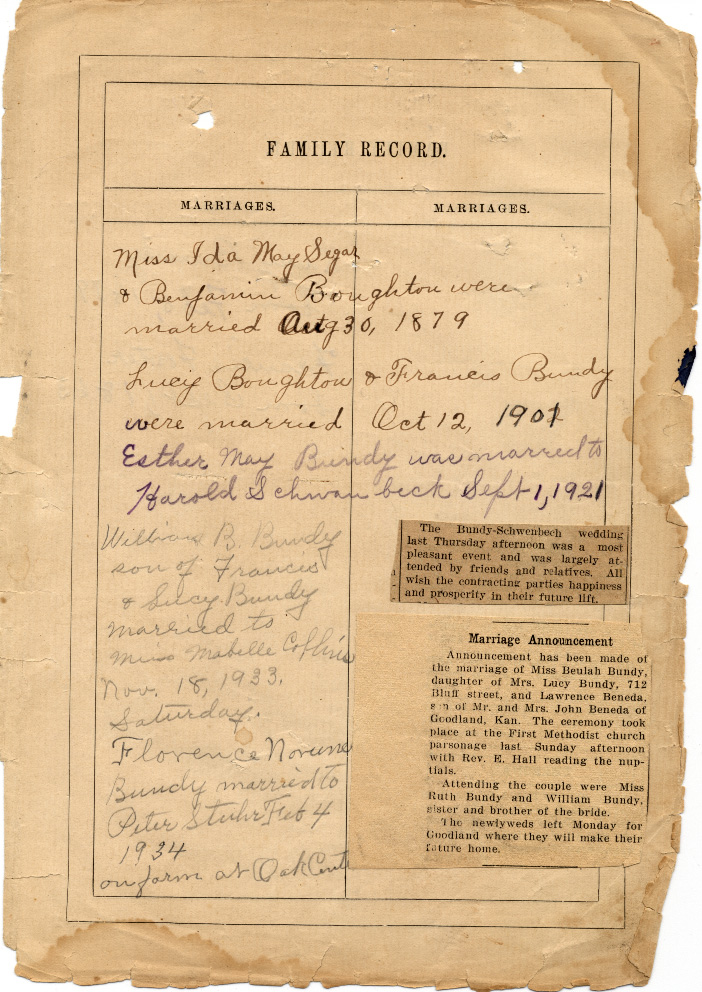 FAMILY RECORD.
MARRIAGES.
MARRIAGES.
Miss Ida May Segar
& Benjamin Boughton were
married Aug 30, 1879
Lucy Boughton & Francis Bundy
were married Oct 12, 1901
Esther May Bundy was married to
Harold Schwanbeck Sept 1, 1921
William B. Bundy
son of Francis
& Lucy Bundy
married to
Miss Mabelle Collins
Nov. 18, 1933.
Saturday.
Florence Norine
Bundy married to
Peter Stuhr Feb 4
1934
on farm at Oak
The Bundy-Schwenbech wedding
last Thursday afternoon was a most
pleasant event and was largely at-
tended by friends and relatives. All
wish the contracting parties happiness
and prosperity in their future lift.
Marriage Announcement
Announcement has been made of
the marriage of Miss Beulah Bundy,
daughter of Mrs. Lucy Bundy, 712
Bluff street, and Lawrence Beneda,
son of Mr. and Mrs. John Beneda of
Goodland, Kan. The ceremony took
place at the First Methodist church
parsonage last Sunday afternoon
with Rev. E. Hall reading the nup-
tials.
Attending the couple were Miss
Ruth Bundy and William Bundy,
sister and brother of the bride.
The newlyweds left Monday for
Goodland where they will make their
future home.